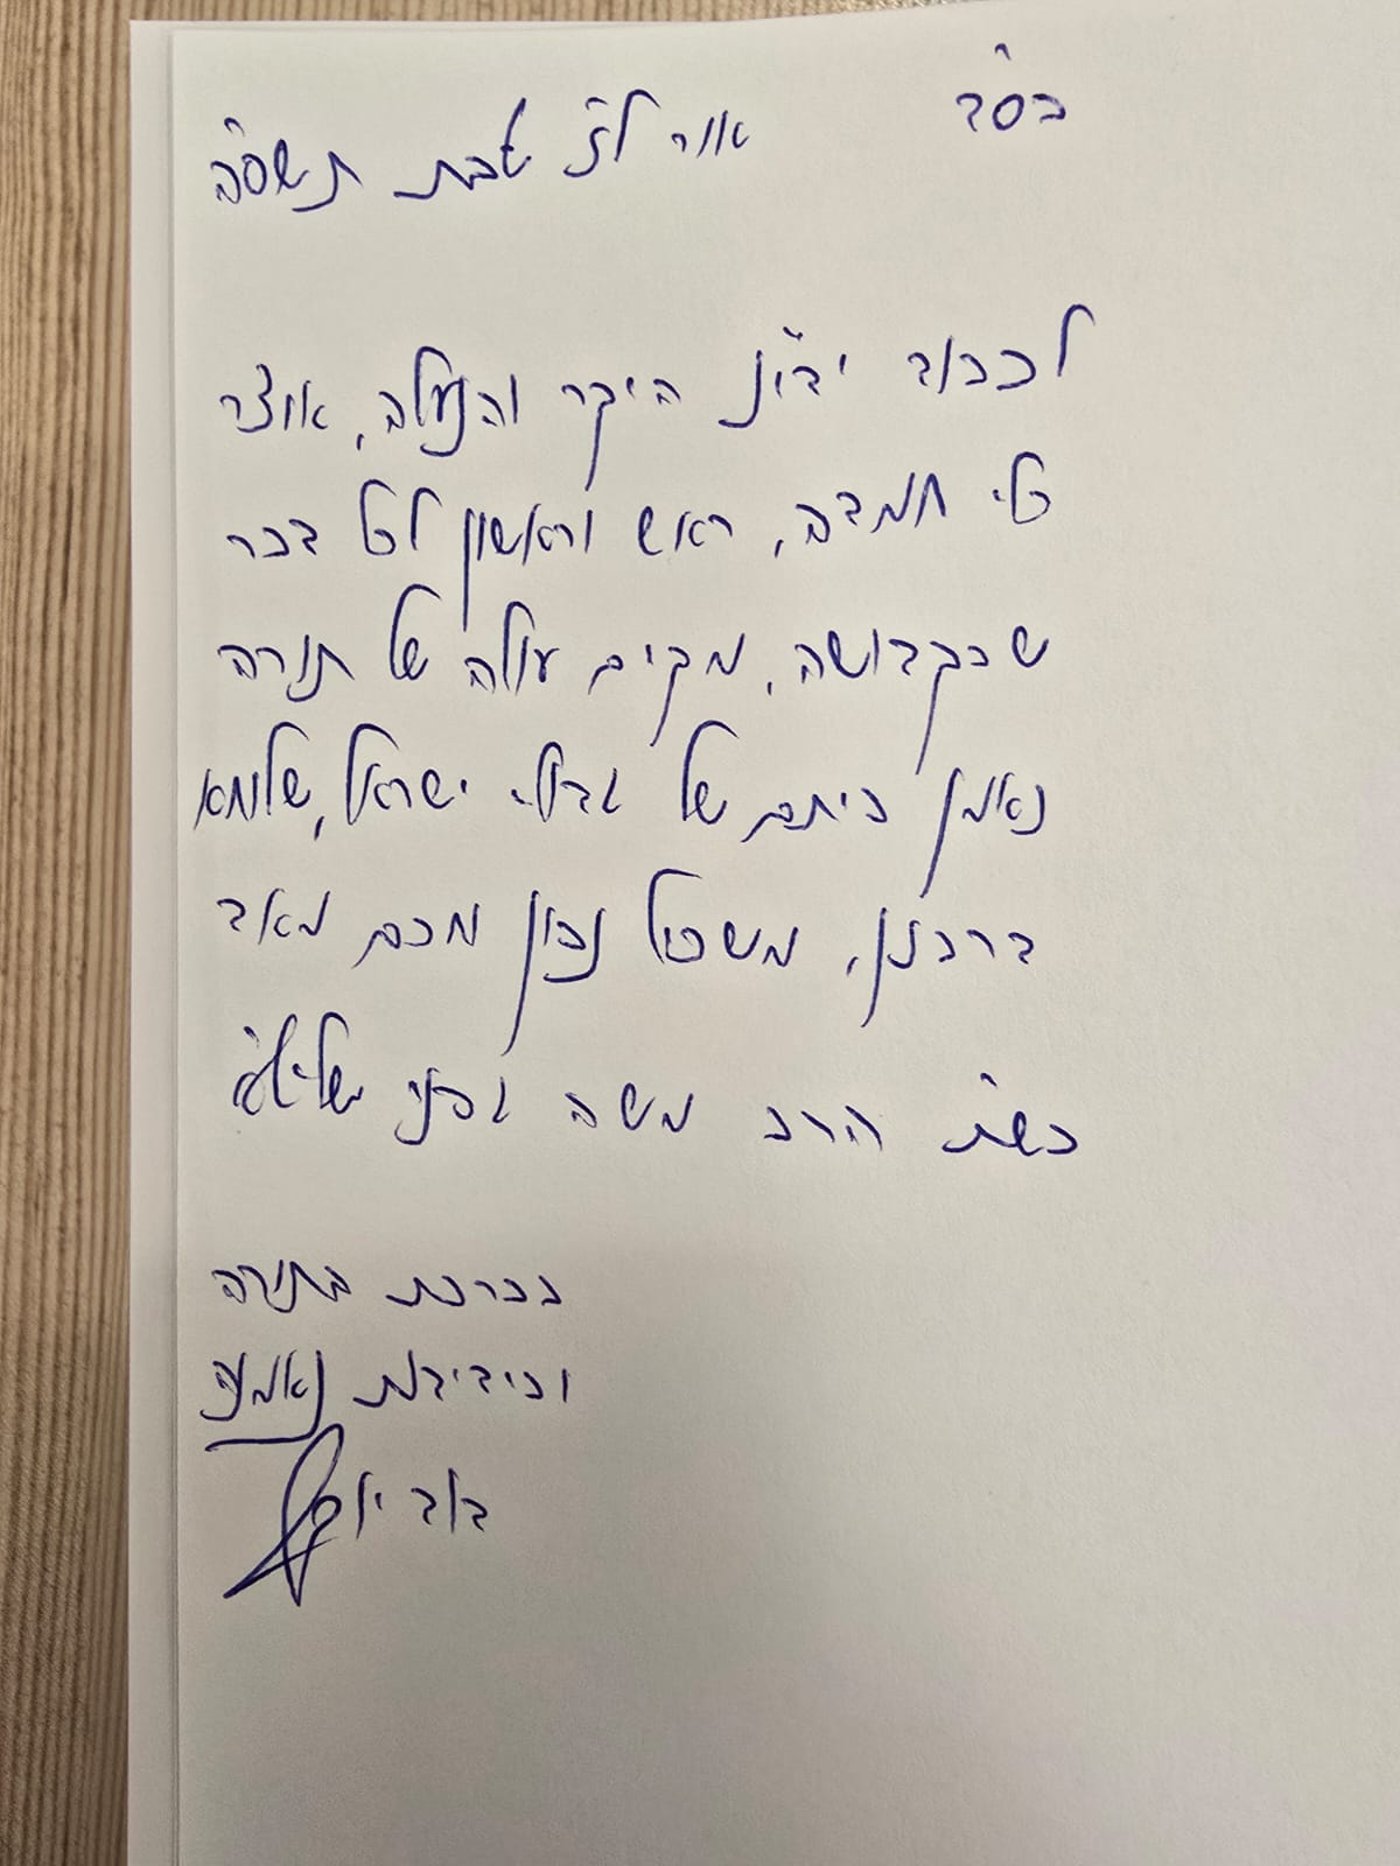 בס"ד
אור לז' טבת תשס"ה
לכבוד ידי"נ היקר והנעלה, אוצר
כלי חמדה, ראש וראשון לכל דבר
שבקדושה, מקים עולה של תורה
נאמן ביתם של גדולי ישראל, שלוחא
דרבנן, משכיל נבון וחכם מאד
כש"ת הרב משה גפני שליט"א
בברכת התורה
ובידידות נאמנה
דוד יוסף